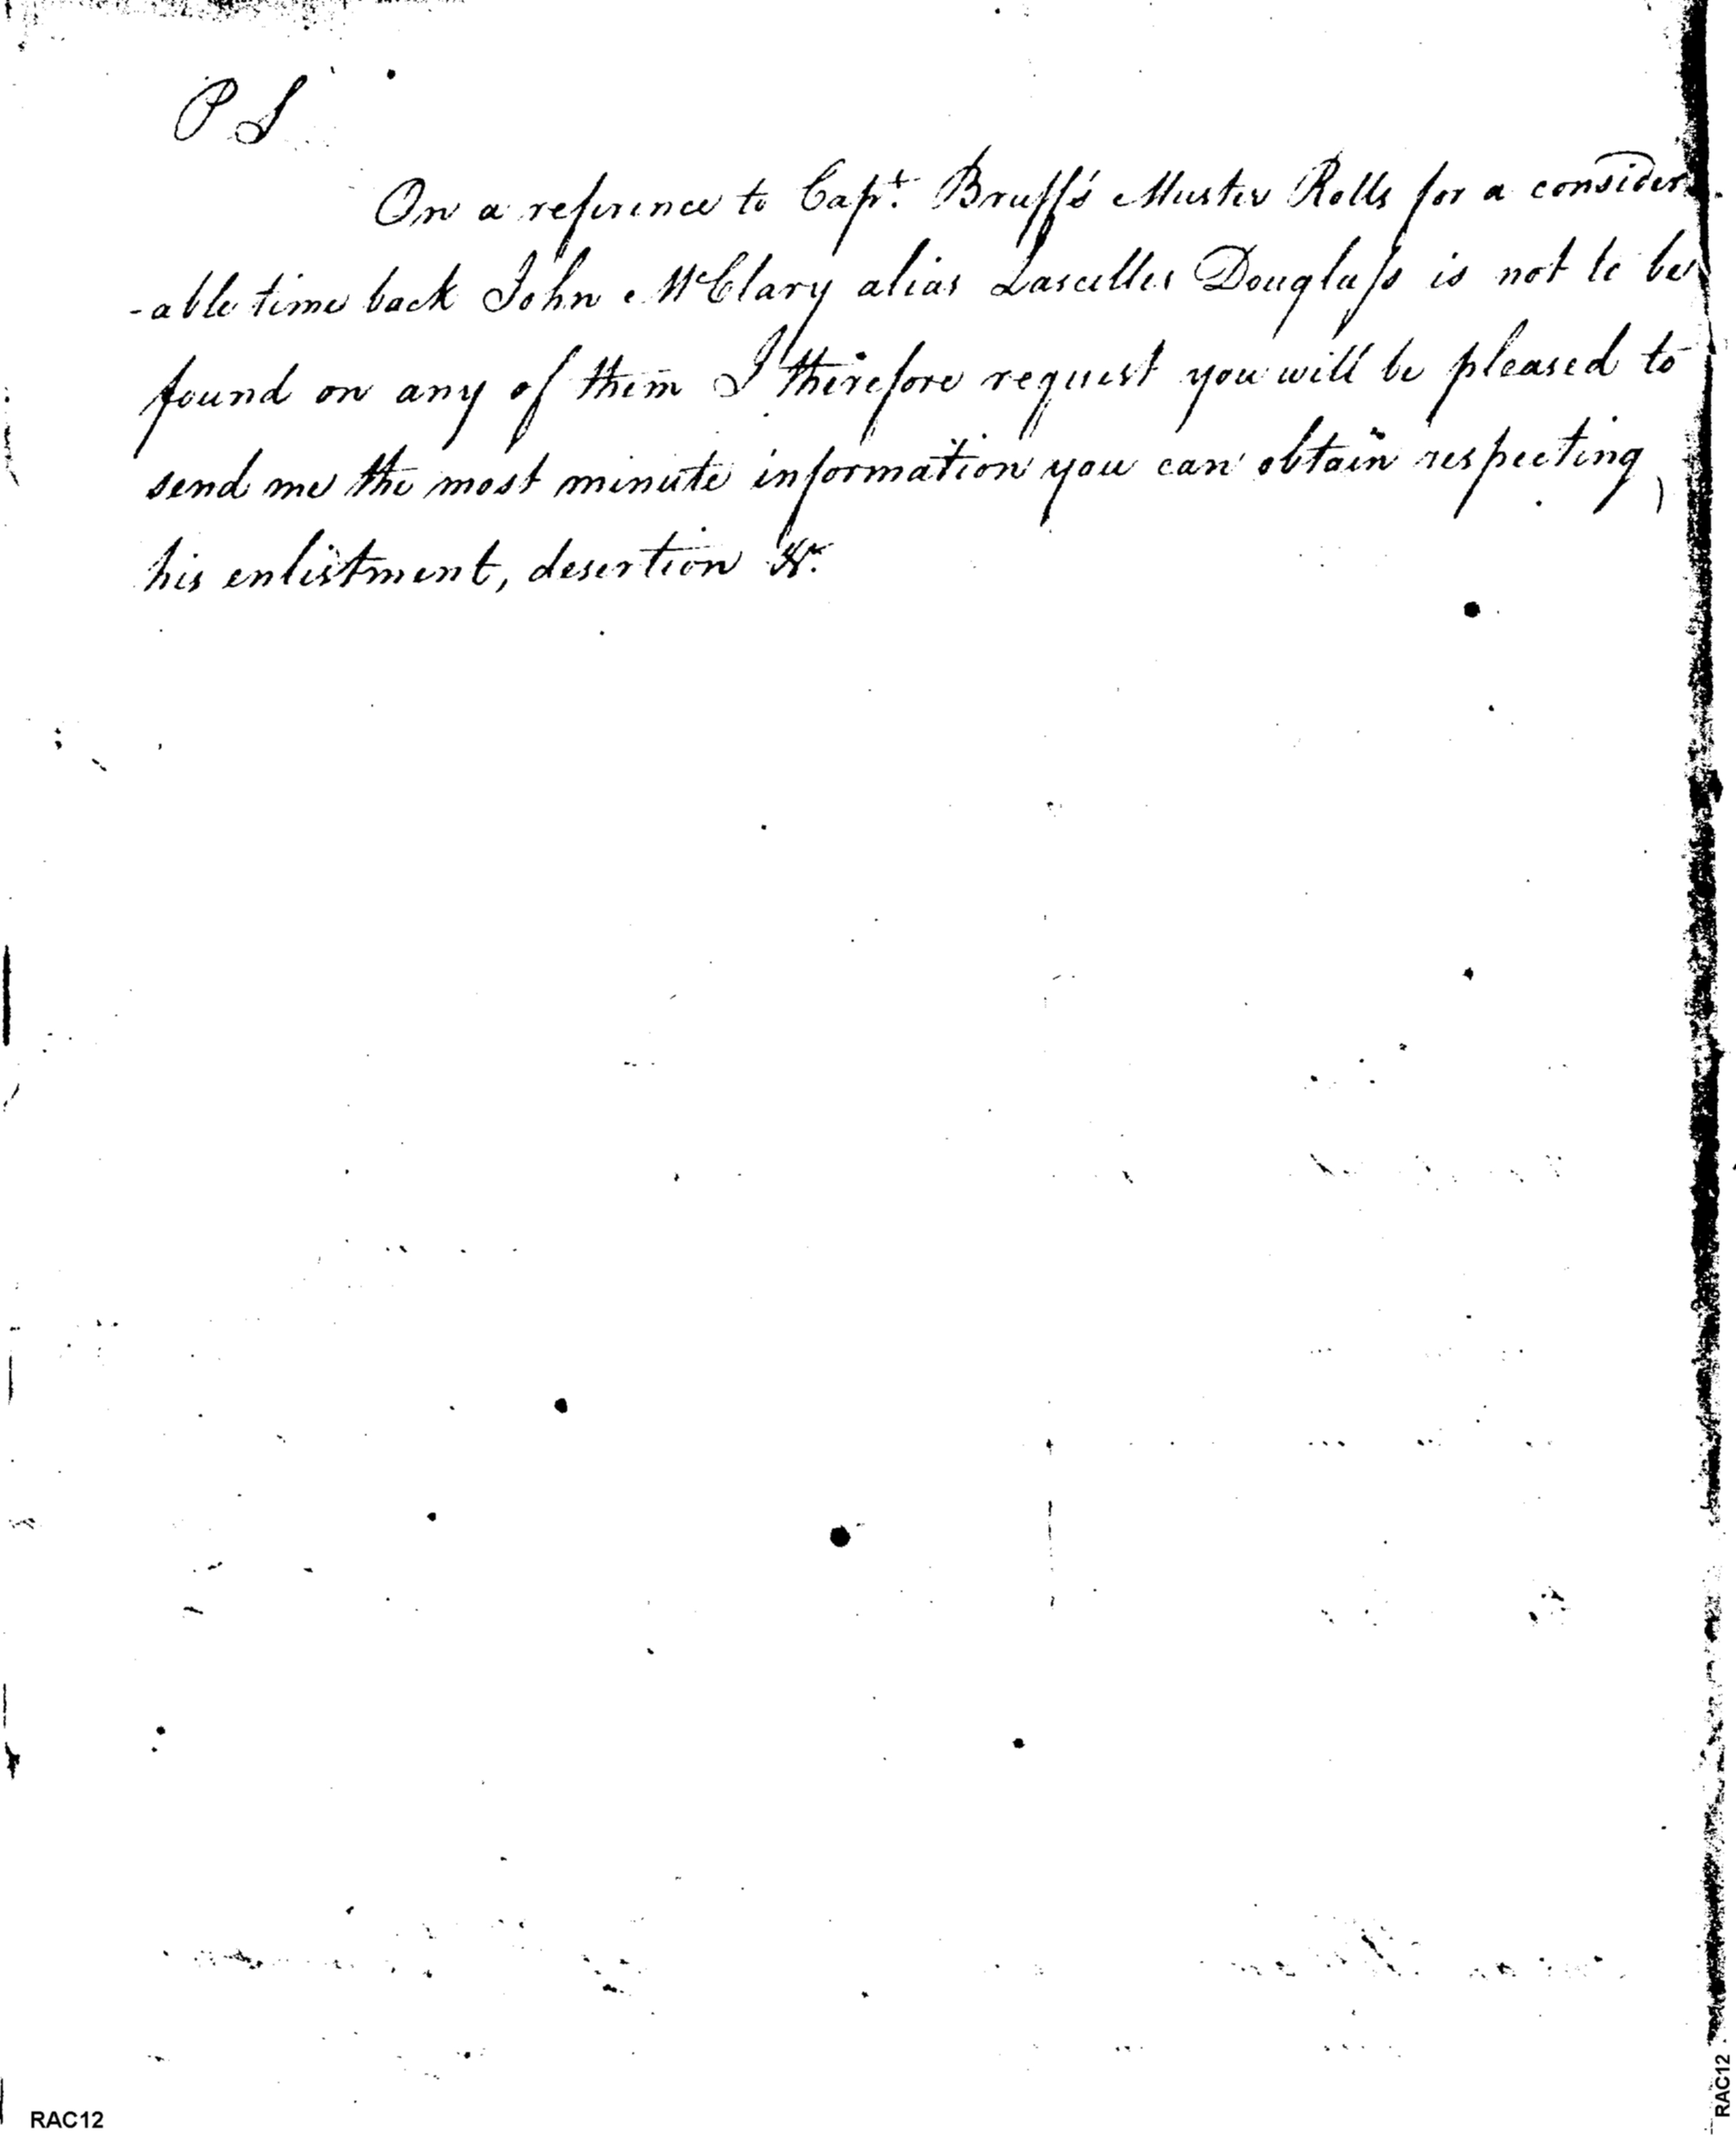 P S
On a reference to Capt. Bruff's Muster Rolls for a consider
-able time back John McClary alias Lascelles Douglass is not to be
found on any of them I therefore request you will be pleased to
send me the most minute information you can obtain respecting
his enlistment, desertion &c.
RAC12
RAC12